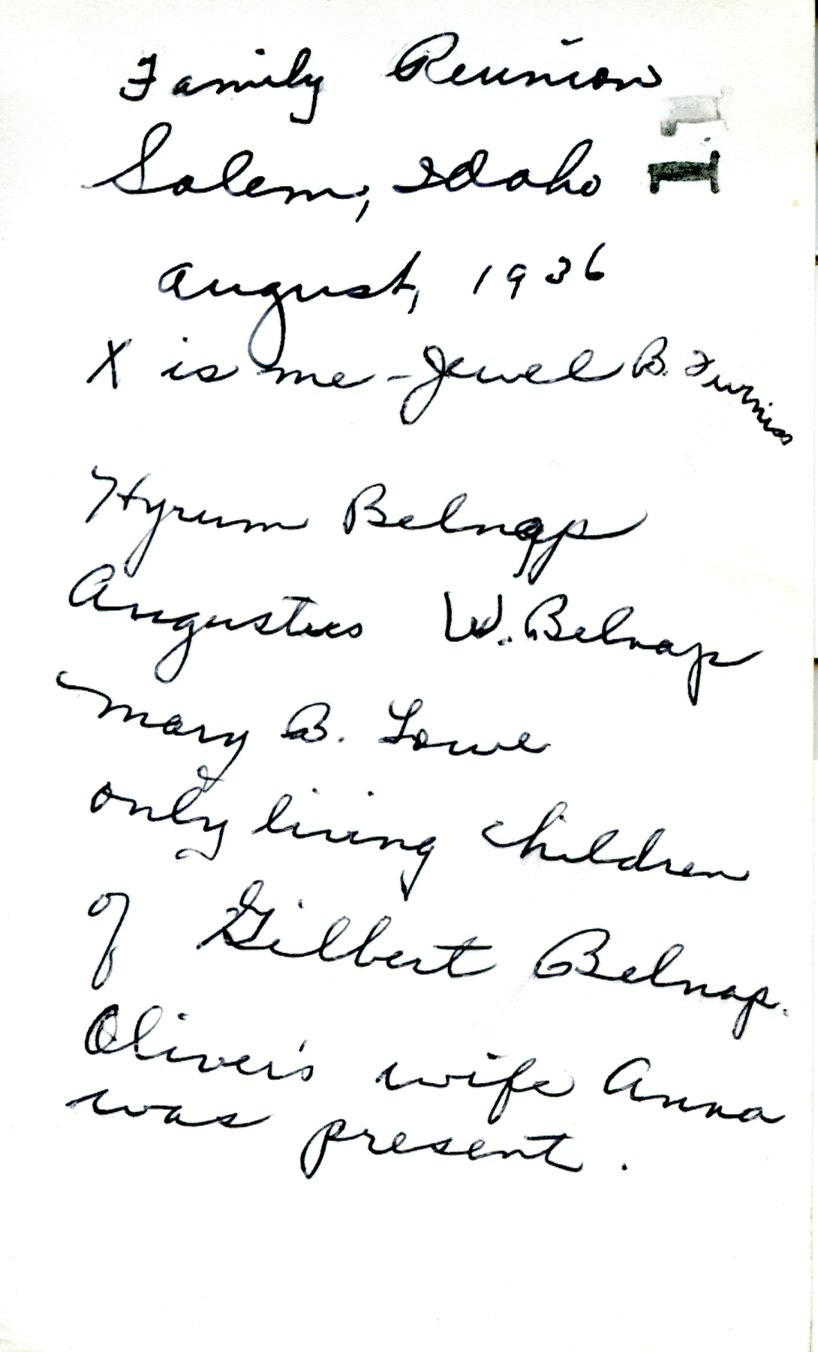 Family Reunion
Salem, Idaho
August, 1936
X is me - Jewel B. Furniss
Hyrum Belnap
Augustus W. Belnap
Mary B. Lowe
only living children
of Gilbert Belnap.
Oliver's wife Anna
was present.